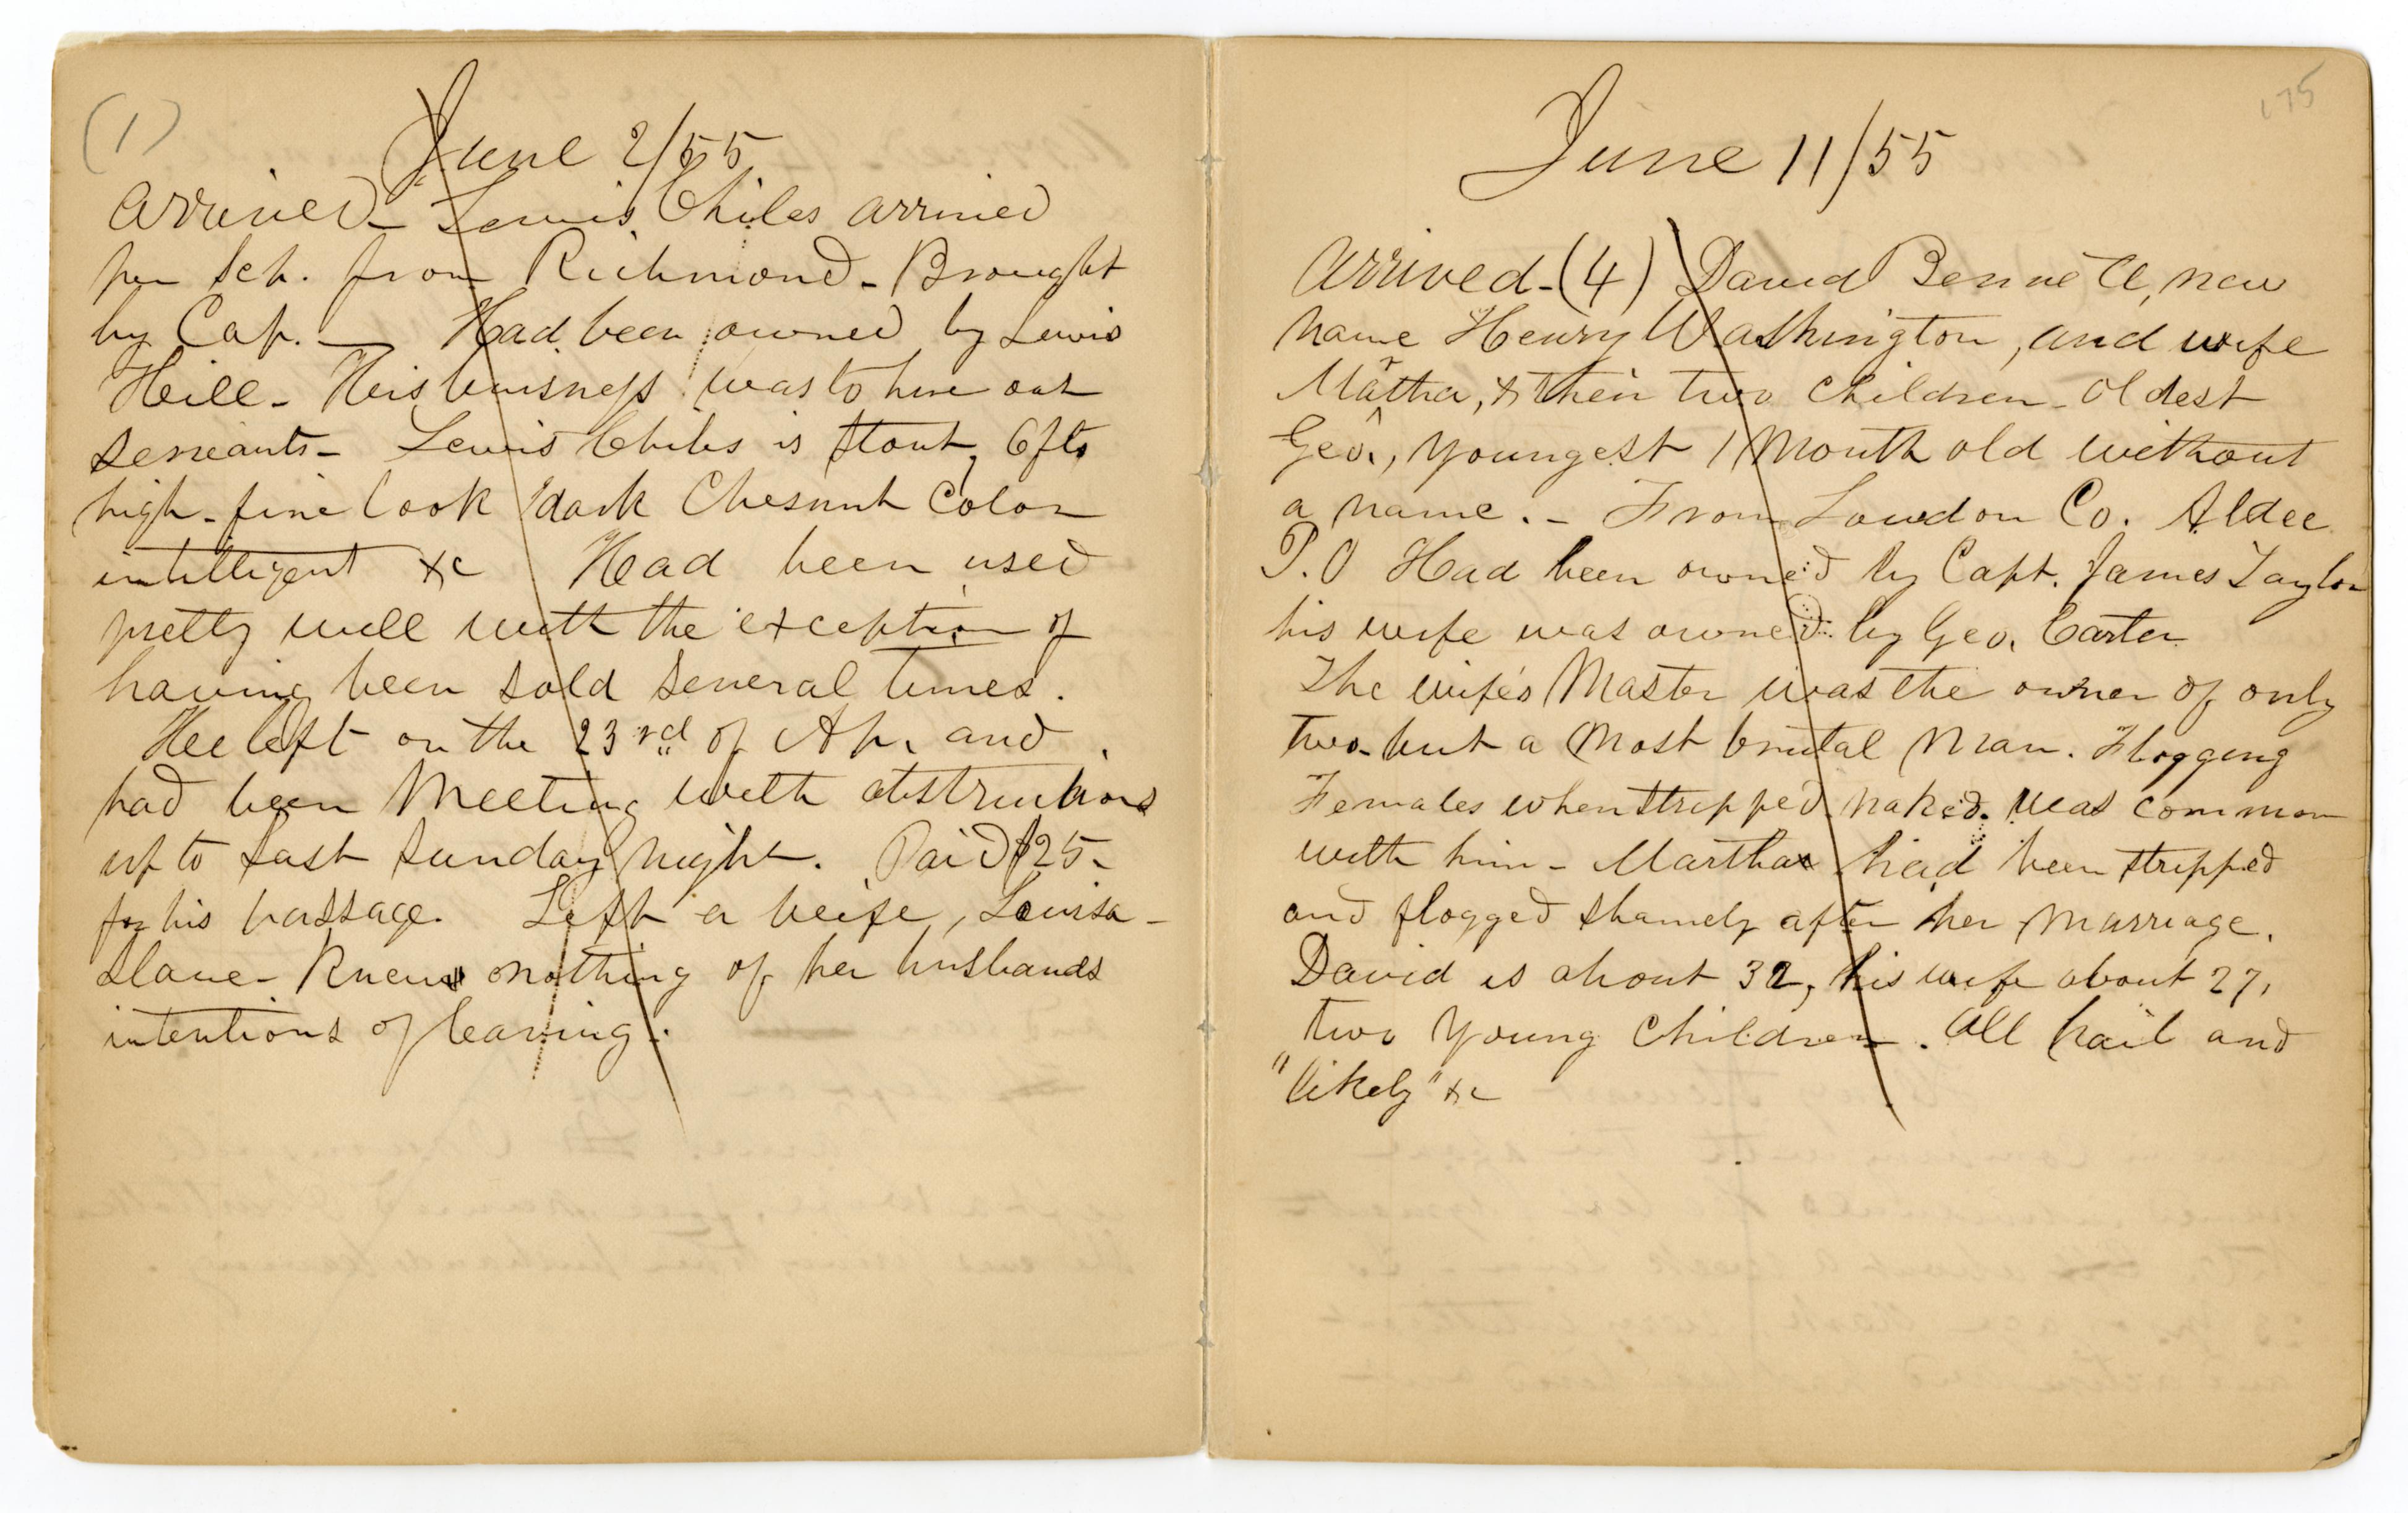 (1)
June 2/55
Arrived - Lewis Chiles arrived
per Sch. from Richmond - Brought
by Cap. — Had been owned by Lewis
Heill - His buisness was to hire out
servants - Lewis Chiles is stout, 6 fts
high - fine look dark Chesnut Color
intelligent &c Had been used
pretty well with the exception of
having been sold several times.
He left on the 23rd of Ap. and
had been meeting with obstructions
up to last sunday night. Paid $25-
for his passage. Left a wife, Louisa -
slave - Knew nothing of her husbands
intentions of leaving.
175
June 11/55
Arrived - (4) David Bennett, new
name Henry Washington, and wife
Martha, & their two children - Oldest
Geo., youngest 1 Month old without
a name. - From Lowdon Co. Aldee
P.O Had been owned by Capt. James Taylor
his wife was owned by Geo. Carter
The wife's Master was the owner of only
two - but a most brutal man. Flogging
Females when stripped naked was common
with him - Martha had been stripped
and flogged shamely after her marriage.
David is about 32, his wife about 27,
two young children. All hail and
"likely" &c